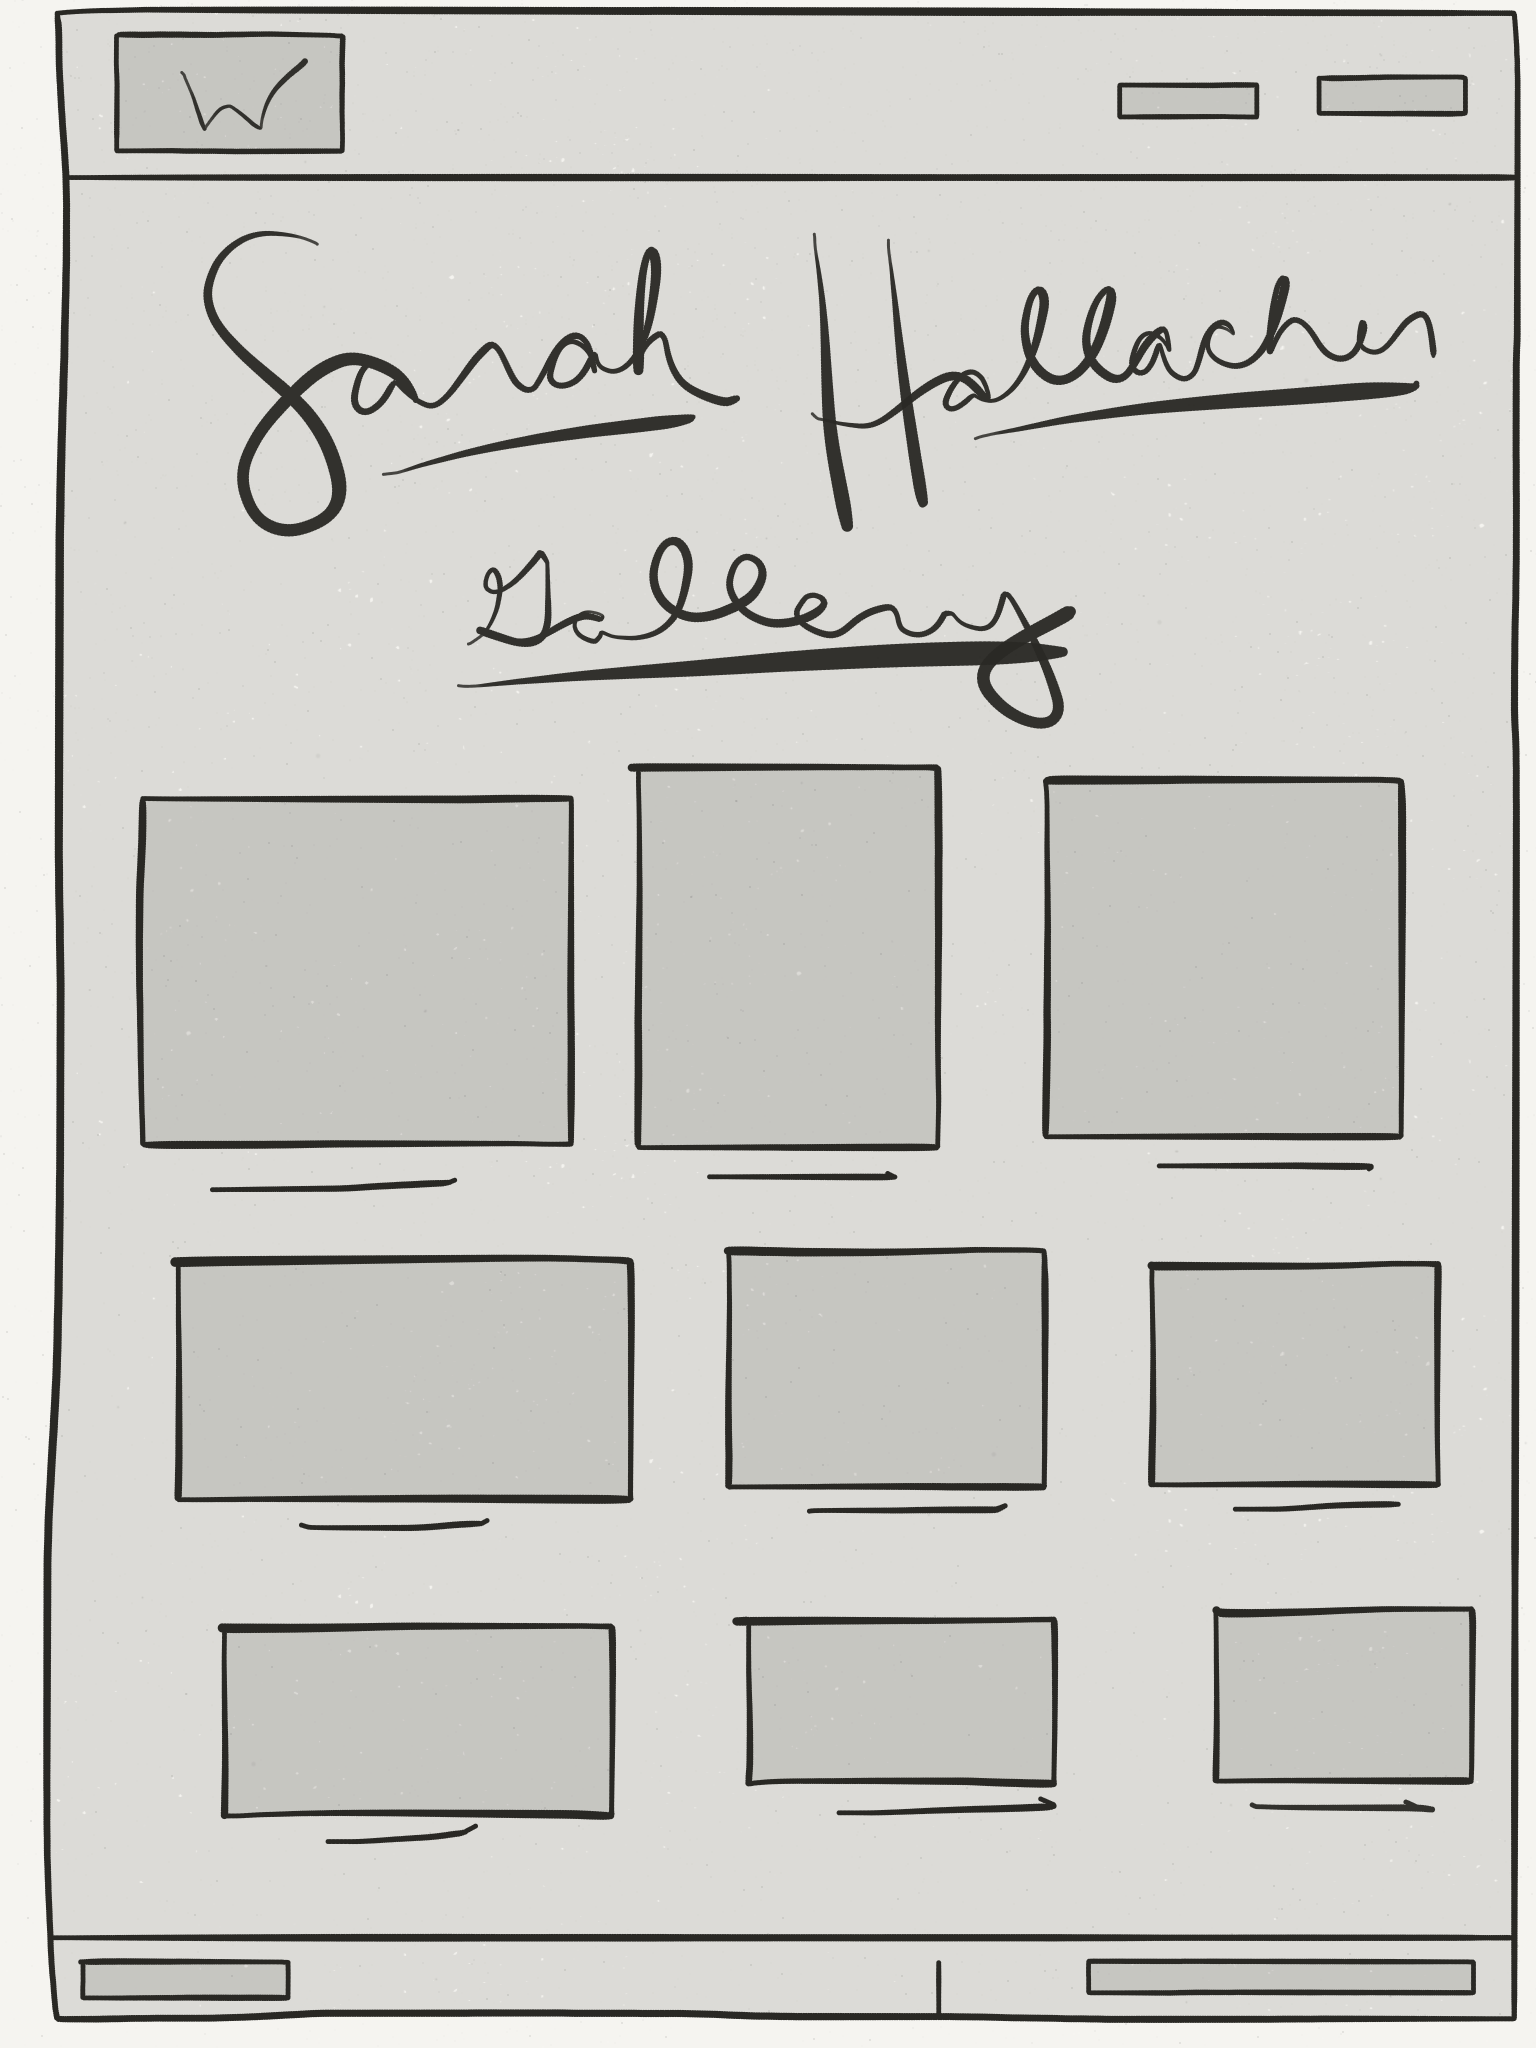 W
Sarah Hallacher
Gallery